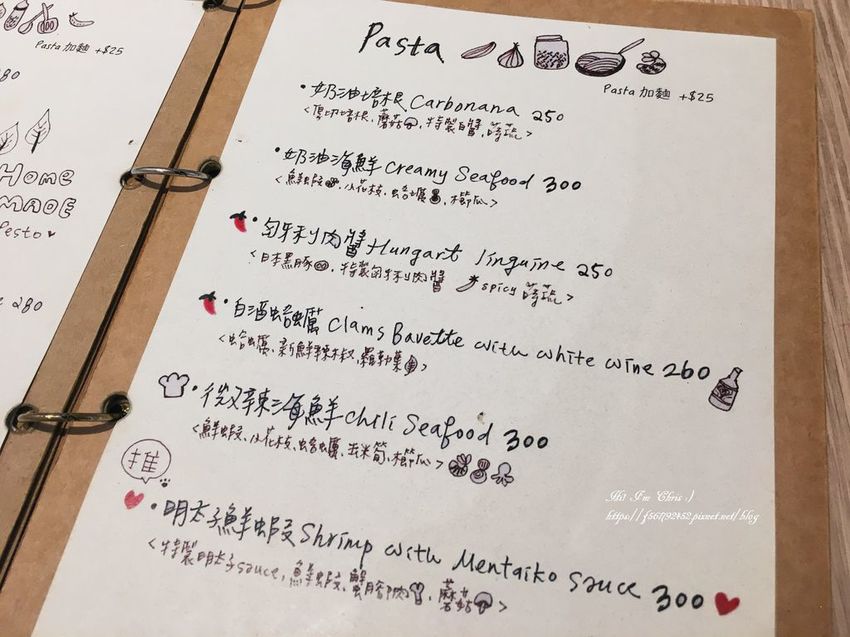 Pasta 加麵 +$25
280
Home
MADE
esto
280
Pasta
Pasta 加麵 +$25
・奶油培根 Carbonana 250
<厚切培根、蘑菇、特製白醬、時蔬>
・奶油海鮮 Creamy Seafood 300
<鮮蝦、小花枝、蛤蠣、櫛瓜>
・匈牙利肉醬 Hungart linguine 250
<日本黑豚、特製匈牙利肉醬 spicy 時蔬>
・白酒蛤蠣 Clams Bavette with white wine 260
<蛤蠣、新鮮辣椒、羅勒葉>
・微辣海鮮 Chili Seafood 300
<鮮蝦、小花枝、蛤蠣、玉米筍、櫛瓜>
推
・明太子鮮蝦 Shrimp with Mentaiko sauce 300
<特製明太子sauce, 鮮蝦、蟹腿肉、蘑菇>
Hi! I'm Chris :)
https://f561792452.pixnet.net/blog